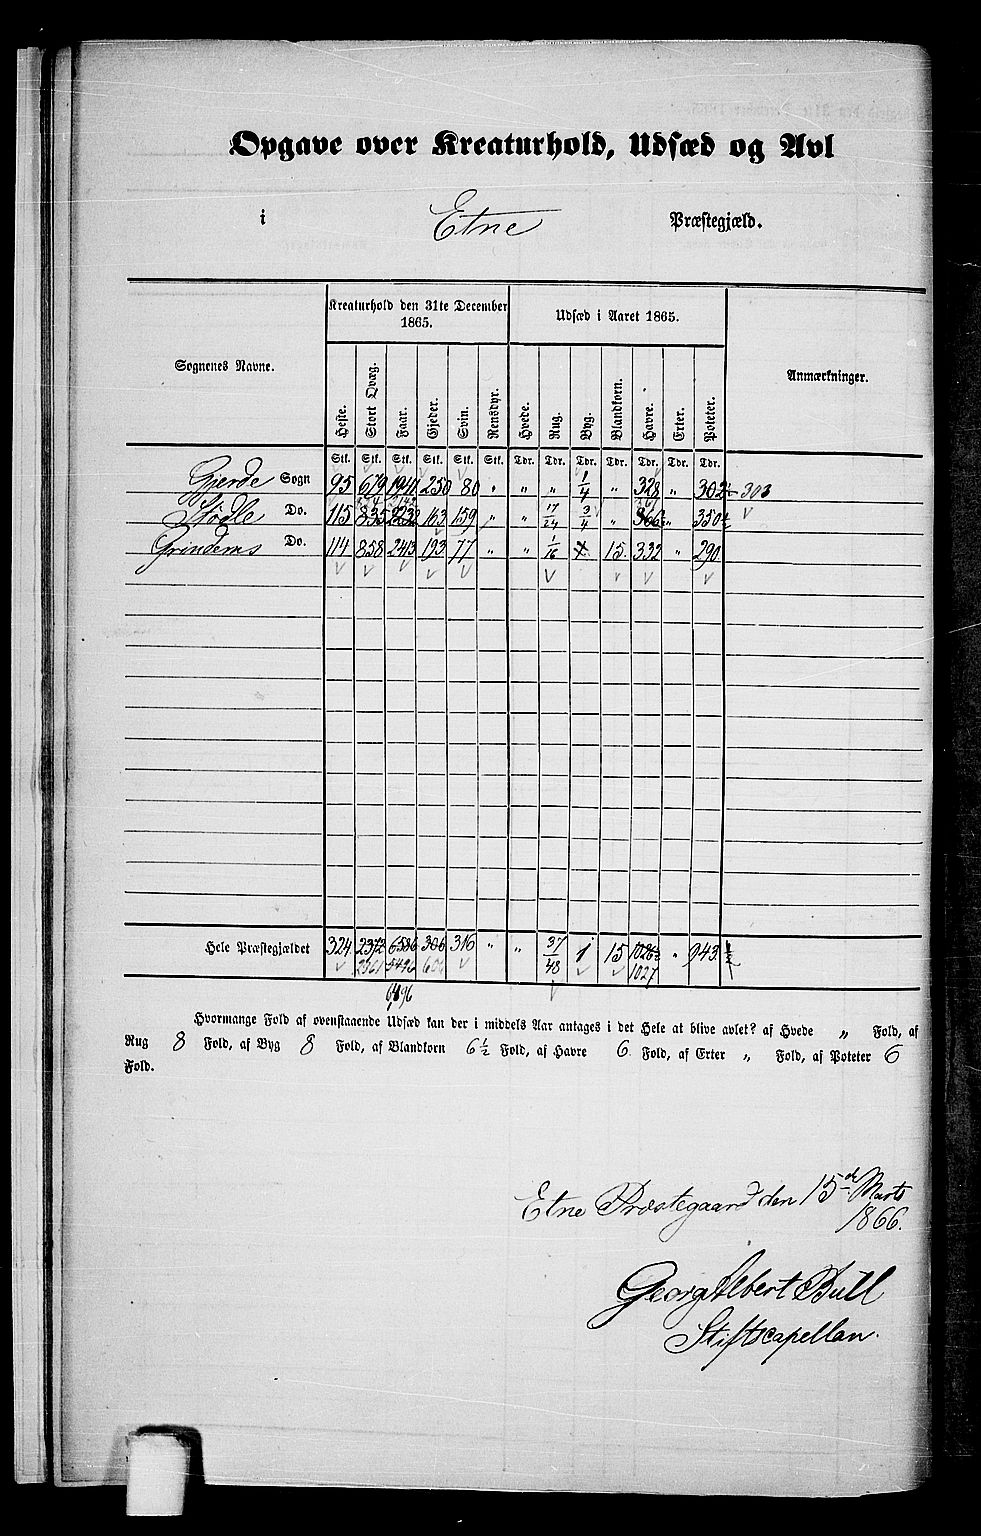 Opgave over Kreaturhold, Udsæd og Avl
i Etne Præstegjæld.
Kreaturhold den 31te December 1865.
Udsæd i Aaret 1865.
Sognenes Navne.
Anmærkninger.
Heste. Stort Qvæg. Faar. Gjeder. Svin. Rensdyr. Hvede. Rug. Byg. Blandkorn. Havre. Erter. Poteter.
Stk. Stk. Stk. Stk. Stk. Stk. Tdr. Tdr. Tdr. Tdr. Tdr. Tdr. Tdr.
Gjerde Sogn 95 679 1941 250 80 " " " 1/4 " 328 " 302 303
Stødle Do. 115 835 2232 163 159 " " 17/24 3/4 " 366 " 350 1/2
Grindems Do. 114 858 2413 193 77 " " 1/16 15. 332 " 290
Hele Præstegjældet 324. 2372 6586 306 316 " " 37/48 1 15 1026 1/2 " 943. 1/2
2361 5496 606 1027
6496
Hvormange Fold af ovenstaaende Udsæd kan der i middels Aar antages i det Hele at blive avlet? af Hvede " Fold, af
Rug 8 Fold, af Byg 8 Fold, af Blandkorn 6 1/2 Fold, af Havre 6. Fold, af Erter " Fold, af Poteter 6
Fold.
Etne Præstegaard den 15d Marts
1866.
Georg Albert Bull
Stiftscapellan.